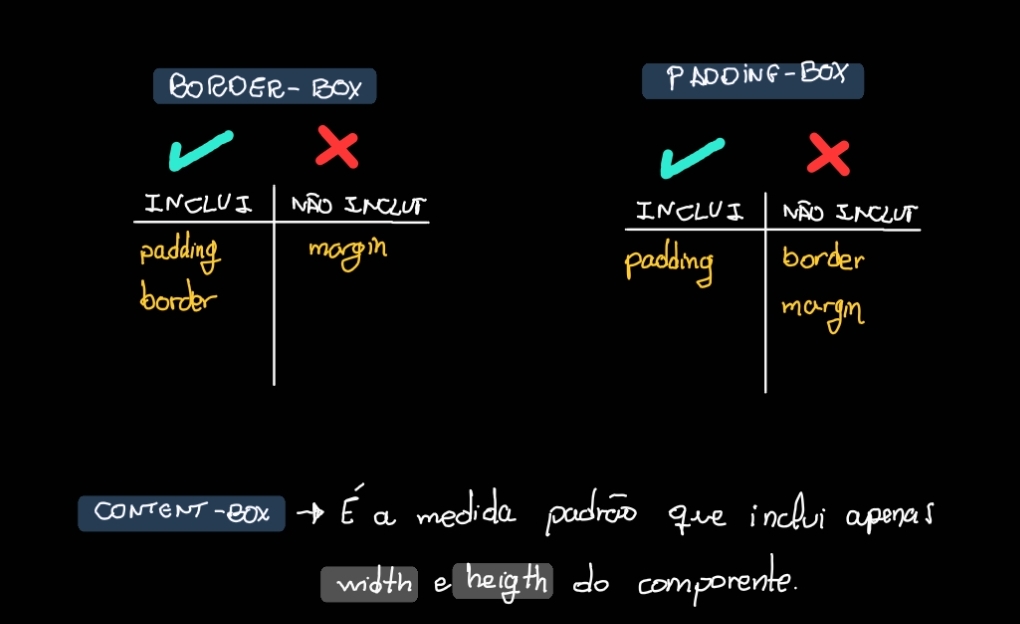 BORDER-BOX
INCLUI NÃO INCLUI
padding margin
border
PADDING-BOX
INCLUI NÃO INCLUI
padding border
margin
CONTENT-BOX → É a medida padrão que inclui apenas
width e heigth do componente.